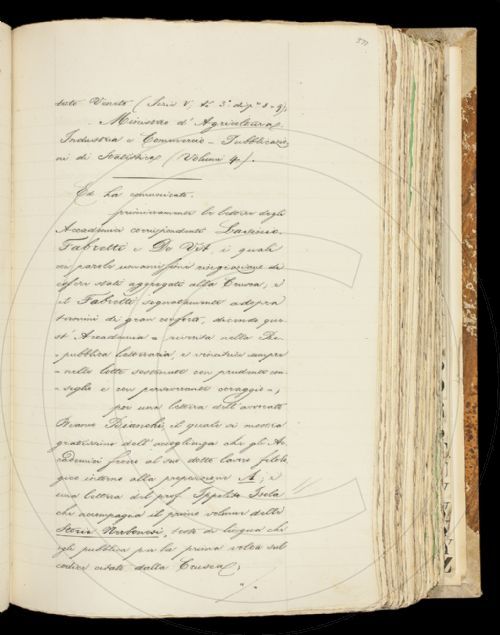 tuto Veneto (Serie V, to. 3° disp.e 8-9),
Ministro d'Agricoltura,
Industria e Commercio - Pubblicazio
ni di Statistica (Volumi 4).
Ed ha comunicato.
primieramente le lettere degli
Accademici corrispondenti Lasinio,
Fabretti e De Vit, i quali
con parole umanissime ringraziano di
essere stati aggregati alla Crusca, e
il Fabretti segnatamente adopra
termini di gran conforto, dicendo que-
st'Accademia "riverita nella Re-
"pubblica letteraria, e vincitrice sempre
"nelle lotte sostenute con prudente con-
"siglio e con perseverante coraggio";
poi una lettera dell'avvocato
Bianchi, il quale si mostra
gratissimo dell'accoglienza che gli Ac-
cademici fecero al suo dotto lavoro filolo
gico intorno alla preposizione A; e
una lettera del prof. Ippolito Isola
che accompagna il primo volume delle
Storie Nerbonesi, testo di lingua che
egli pubblica per la prima volta sul
codice citato dalla Crusca;